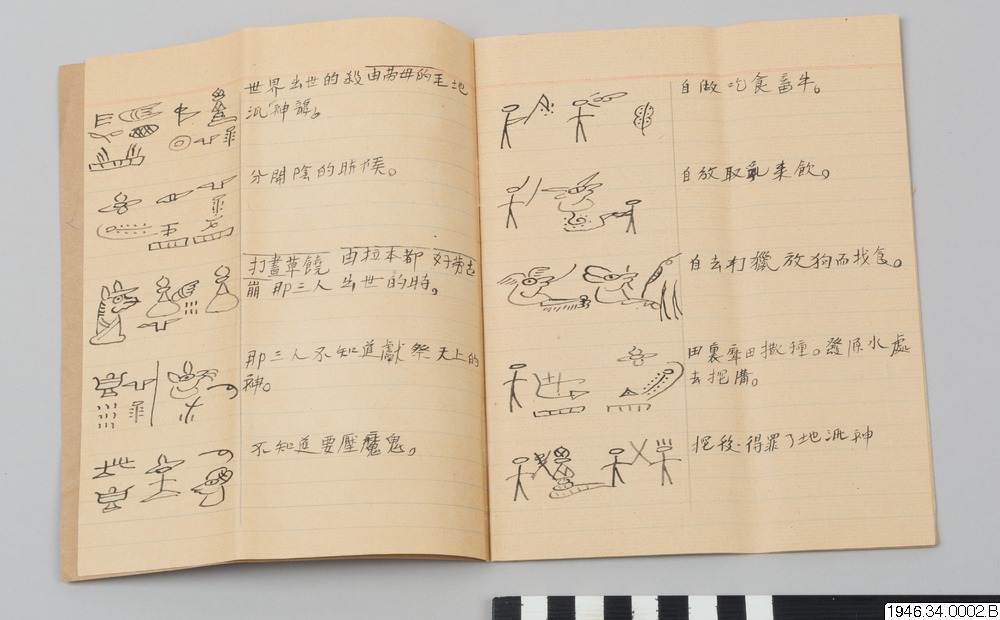 世界出世的殺由苦母的毛地
泒神譜。
分開陰的時候。
打畫草饒 由拉本都 好勞古
崩那三人出世的時。
那三人不知道獻祭天上的
神。
不知道要壓魔鬼。
自做吃食畜牛。
自放取乳来飲。
自去打獵放狗而找食。
田裏犂田撒種。發原水處
去挖溝。
挖後得罪了地泒神
1946.34.0002.B